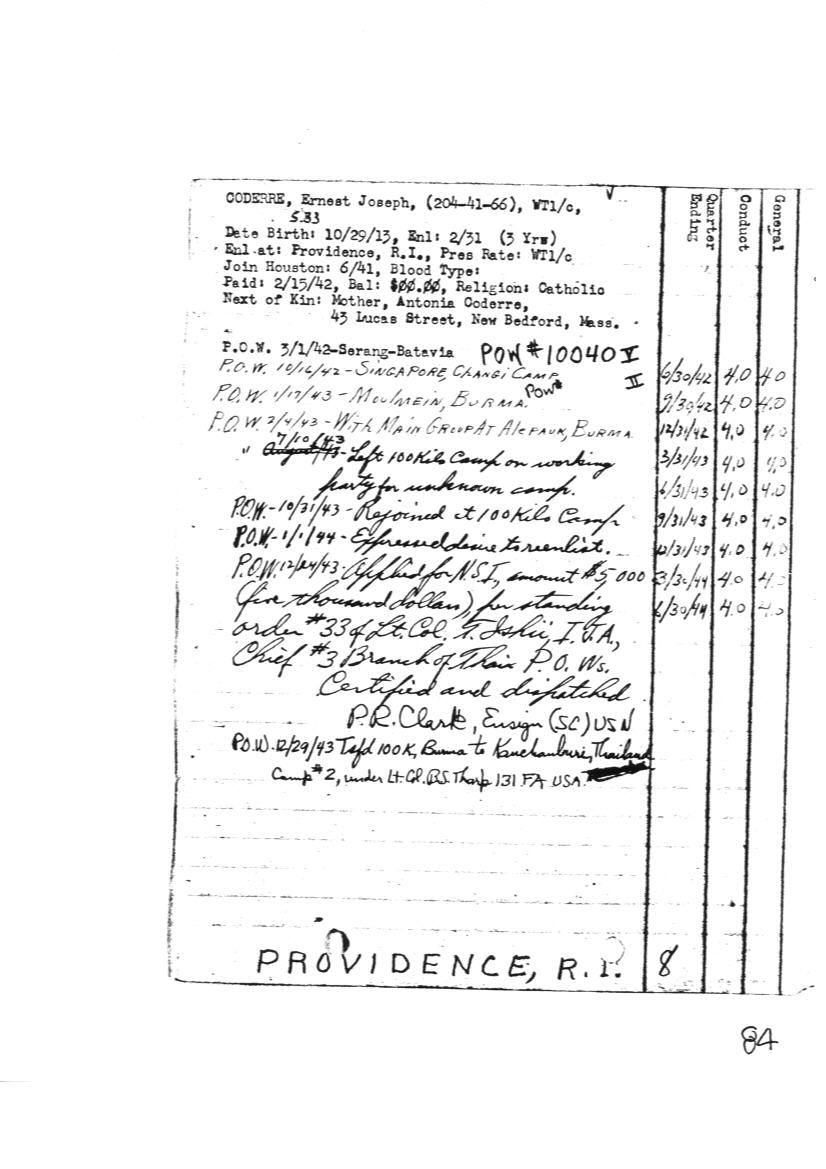 CODERRE, Ernest Joseph, (204-41-66), WT1/c,
5.33
Date Birth: 10/29/13, Enl: 2/31 (3 Yrs)
Enl at: Providence, R.I., Pres Rate: WT1/c
Join Houston: 6/41, Blood Type:
Paid: 2/15/42, Bal: $00.00, Religion: Catholic
Next of Kin: Mother, Antonia Coderre,
43 Lucas Street, New Bedford, Mass.
Quarter Ending Conduct General
P.O.W. 3/1/42-Serang-Batavia POW #10040 V
P.O.W. 10/16/42 - SINGAPORE, CHANGI CAMP II
6/30/42 4.0 4.0
P.O.W. 1/17/43 - MOULMEIN, BURMA. POW#
9/30/42 4.0 4.0
P.O.W. 2/4/43 - WITH MAIN GROUP AT ALEPAUK, BURMA
12/31/42 4.0 4.0
7/10/43
" August/43 - Left 100 Kilo Camp on working
3/31/43 4.0 4.0
party for unknown camp.
6/31/43 4.0 4.0
P.O.W. - 10/31/43 - Rejoined at 100 Kilo Camp
9/31/43 4.0 4.0
P.O.W. - 1/1/44 - Expressed desire to reenlist.
12/31/43 4.0 4.0
P.O.W. 12/24/43 - Applied for N.S.I, amount $5,000
3/30/44 4.0 4.0
(five thousand dollars), per standing
6/30/44 4.0 4.0
order #33 of Lt. Col. T. Ishii, I.J.A,
Chief #3 Branch of Thai P.O.Ws.
Certified and dispatched
P.R. Clark, Ensign (SC) USN
P.O.W. 12/29/43 Tsfd 100K, Burma to Kanchanburi, Thailand
Camp #2, under Lt. Col. B.S. Tharp 131 FA USA.
PROVIDENCE, R.I. 8
84